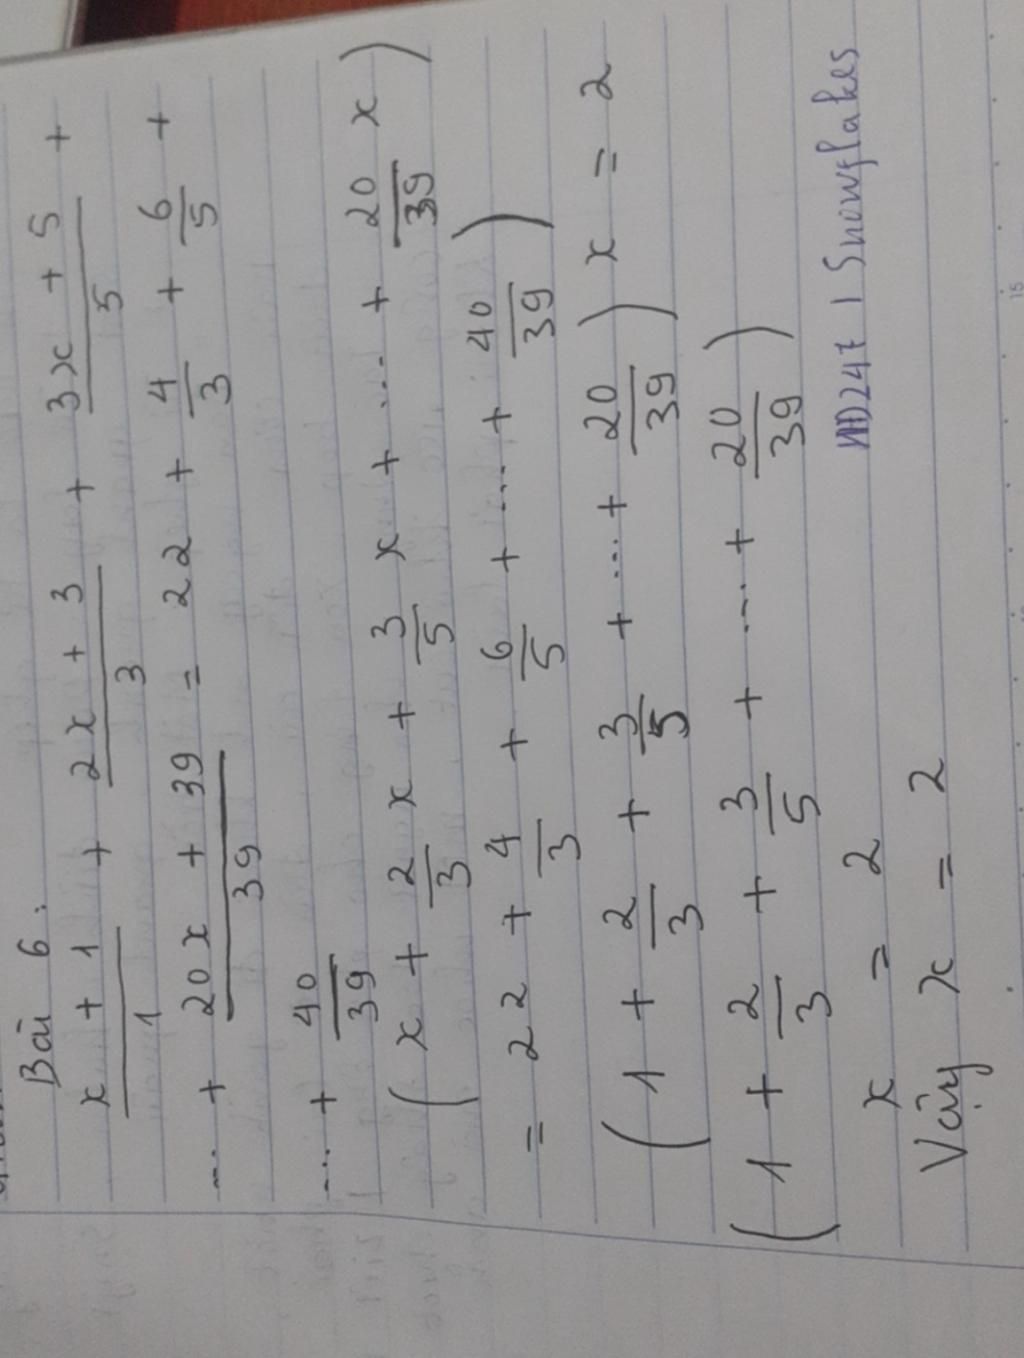 Bài 6:
x + 1/1 + 2x + 3/3 + 3x + 5/5 +
... + 20x + 39/39 = 22 + 4/3 + 6/5 +
... + 40/39
(x + 2/3 x + 3/5 x + ... + 20/39 x)
= 22 + 4/3 + 6/5 + ... + 40/39)
(1 + 2/3 + 3/5 + ... + 20/39) x = 2
(1 + 2/3 + 3/5 + ... + 20/39)
x = 2
HD247 | Snowflakes
Vậy x = 2